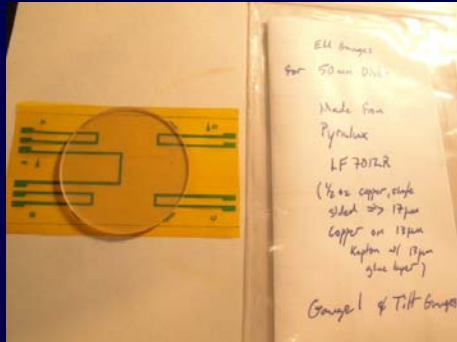 EM Gauges
for 50mm Disks
Made from
Pyralux
LF 7012R
(½ oz copper, single
sided => 17µm
copper on 13µm
Kapton w/ 13µm
glue layer)
Gauge 1 & Tilt Gauges